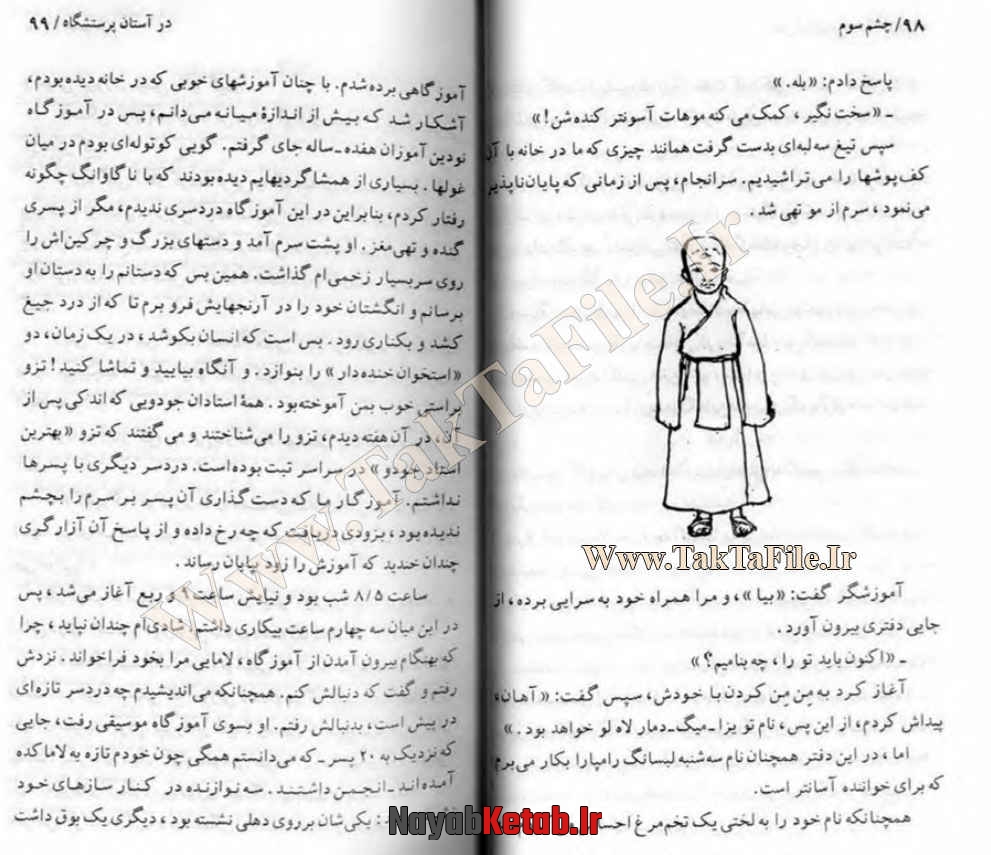 ۹۸/چشم سوم
پاسخ دادم: «بله. »
ـ «سخت نگیر، کمک می کنه موهات آسونتر کنده شن! »
سپس تیغ سه لبه‌ای بدست گرفت همانند چیزی که ما در خانه با آن
کف‌پوشها را می‌تراشیدیم. سرانجام، پس از زمانی که پایان‌ناپذیر
می‌نمود، سرم از مو تهی شد.
Www.TakTaFile.Ir
Www.TakTaFile.Ir
آموزشگر گفت: «بیا »، و مرا همراه خود به سرایی برده، از
جایی دفتری بیرون آورد.
ـ «اکنون باید تو را، چه بنامیم؟ »
آغاز کرد به مِن مِن کردن با خودش، سپس گفت: « آهان،
پیداش کردم، از این پس، نام تو یزا ـ میگ ـ دمار لاه لو خواهد بود. »
اما، در این دفتر همچنان نام سه‌شنبه لبسانگ رامپارا بکار می‌برم
که برای خواننده آسانتر است.
همچنانکه نام خود را به لختی یک تخم‌مرغ احس
در آستان پرستشگاه /۹۹
آموزگاهی برده شدم. با چنان آموزشهای خوبی که در خانه دیده بودم،
آشکار شد که بیش از اندازهٔ میانه می‌دانم، پس در آموزگاه
نودین آموزان هفده ـ ساله جای گرفتم. گویی کوتوله‌ای بودم در میان
غولها. بسیاری از همشاگردیهایم دیده بودند که با ناگاوانگ چگونه
رفتار کردم، بنابراین در این آموزگاه دردسری ندیدم، مگر از پسری
گنده و تهی‌مغز. او پشت سرم آمد و دستهای بزرگ و چرکین‌اش را
روی سر بسیار زخمی‌ام گذاشت. همین بس که دستانم را به دستان او
برسانم و انگشتان خود را در آرنجهایش فرو برم تا که از درد جیغ
کشد و بکناری رود. بس است که انسان بکوشد، در یک زمان، دو
«استخوان خنده‌دار » را بنوازد، و آنگاه بیایید و تماشا کنید! تزو
براستی خوب بمن آموخته بود. همهٔ استادان جودویی که اندکی پس از
آن، در آن هفته دیدم، تزو را می‌شناختند و می‌گفتند که تزو «بهترین
استاد جودو » در سراسر تبت بوده است. دردسر دیگری با پسرها
نداشتم. آموزگار ما که دست گذاری آن پسر بر سرم را بچشم
ندیده بود، بزودی دریافت که چه رخ داده و از پاسخ آن آزارگری
چندان خندید که آموزش را زود بپایان رساند.
ساعت ۸/۵ شب بود و نیایش ساعت ۹ و ربع آغاز می‌شد، پس
در این میان سه چهارم ساعت بیکاری داشتم. شادی‌ام چندان نپاید، چرا
که بهنگام بیرون آمدن از آموزگاه، لامایی مرا بخود فراخواند. نزدش
رفتم و گفت که دنبالش کنم. همچنانکه می‌اندیشیدم چه دردسر تازه‌ای
در پیش است، بدنبالش رفتم. او بسوی آموزگاه موسیقی رفت، جایی
که نزدیک به ۲۰ پسر ـ که می‌دانستم همگی چون خودم تازه به لاماکده
آمده‌اند ـ انجمن داشتند. سه نوازنده در کنار سازهای خود
یکی‌شان برروی دهلی نشسته بود، دیگری یک بوق داشت
NayabKetab.Ir